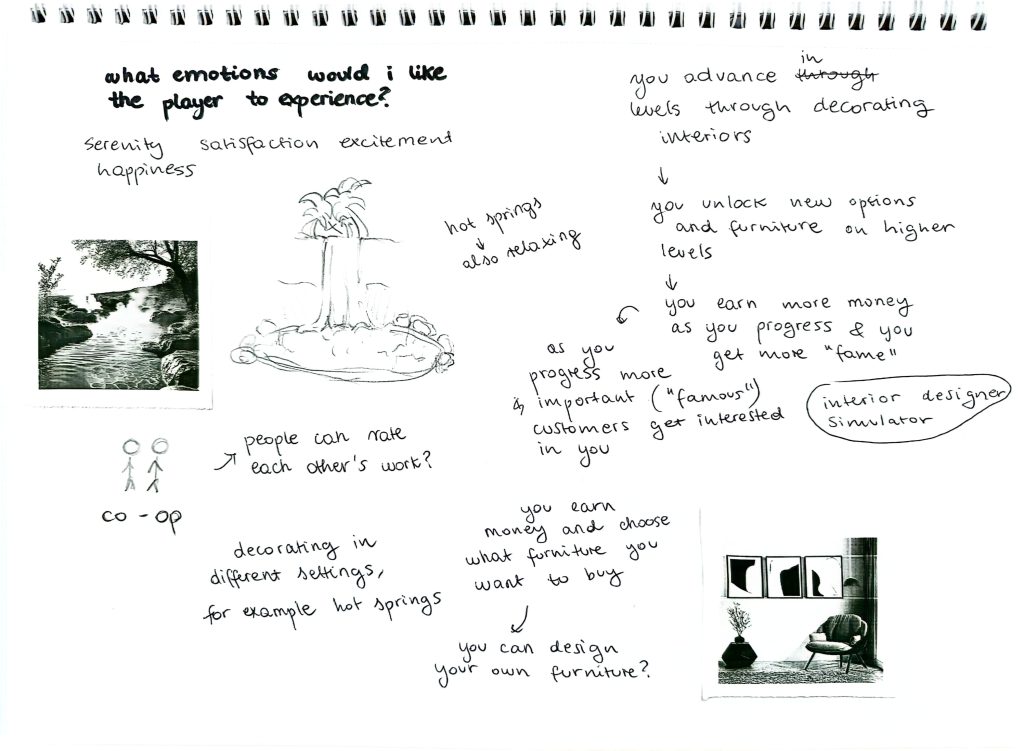 what emotions would i like
the player to experience?
serenity satisfaction excitement
happiness
hot springs
↓
also relaxing
co-op
people can rate
each other's work?
decorating in
different settings,
for example hot springs
you advance ~~through~~ in
levels through decorating
interiors
↓
you unlock new options
and furniture on higher
levels
↓
you earn more money
as you progress & you
get more "fame"
as you
progress more
& important ("famous")
customers get interested
in you
interior designer
simulator
you earn
money and choose
what furniture you
want to buy
you can design
your own furniture?